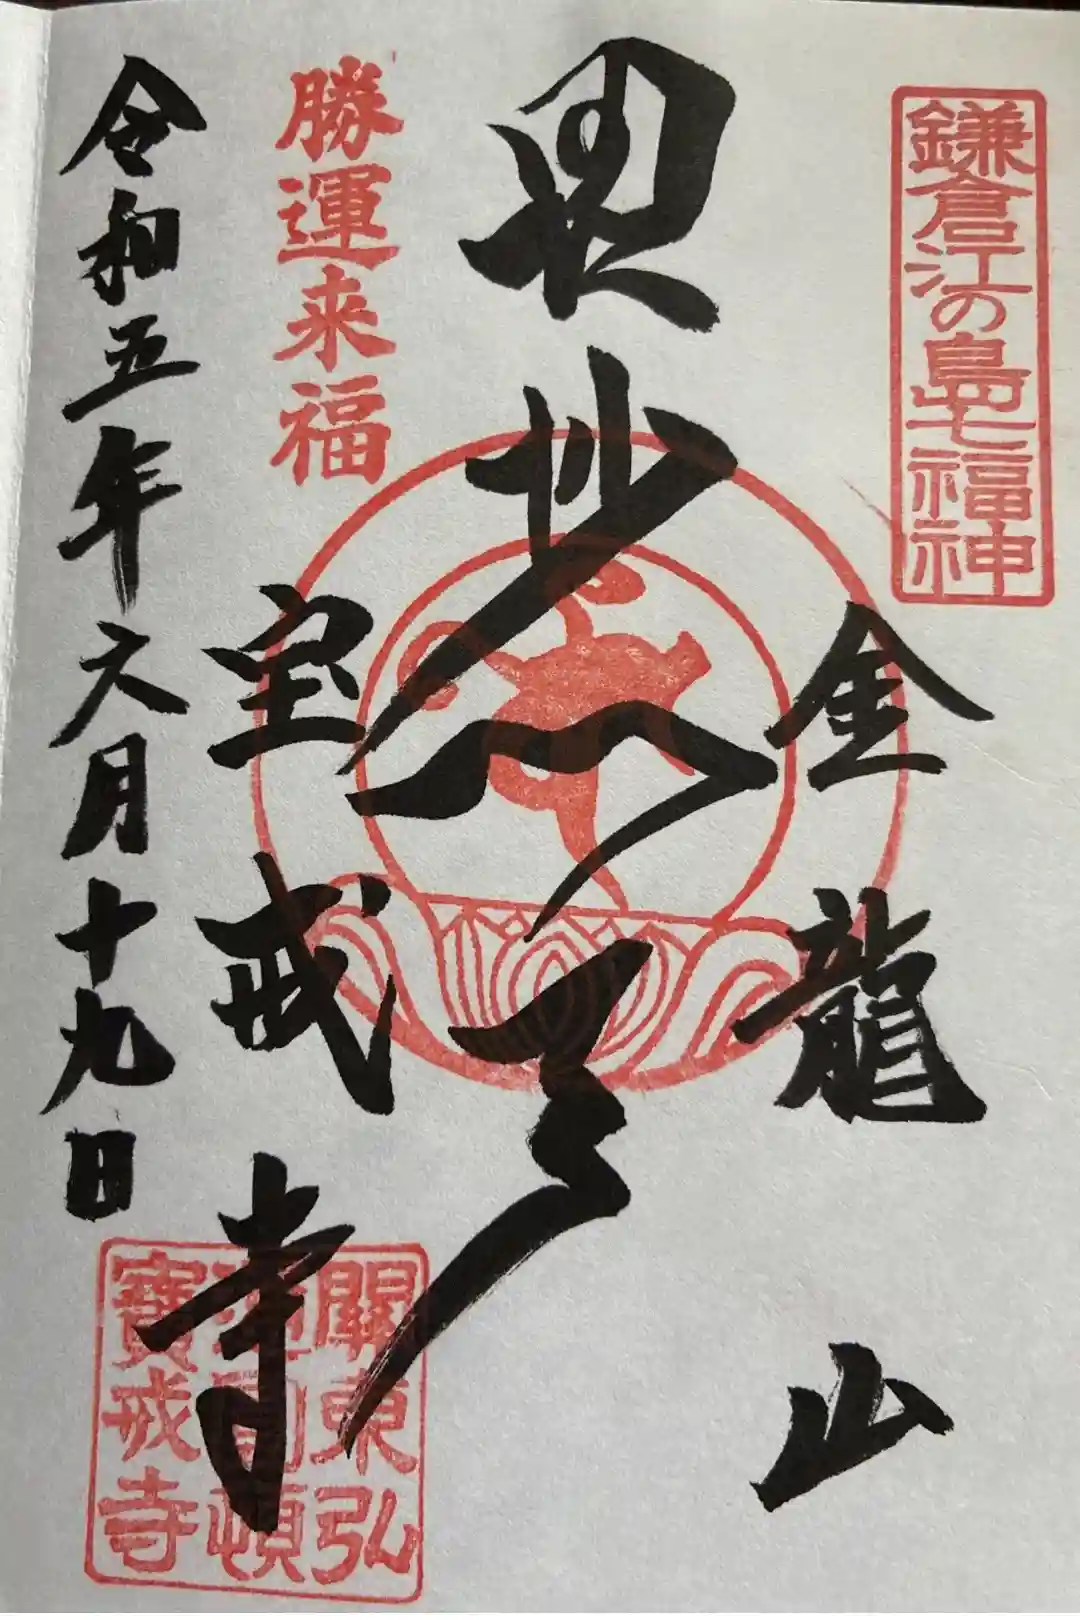 鎌倉江の島七福神
金龍山
毘沙門天
勝運来福
宝戒寺
令和五年六月十九日
關東弘
通圓頓
寶戒寺